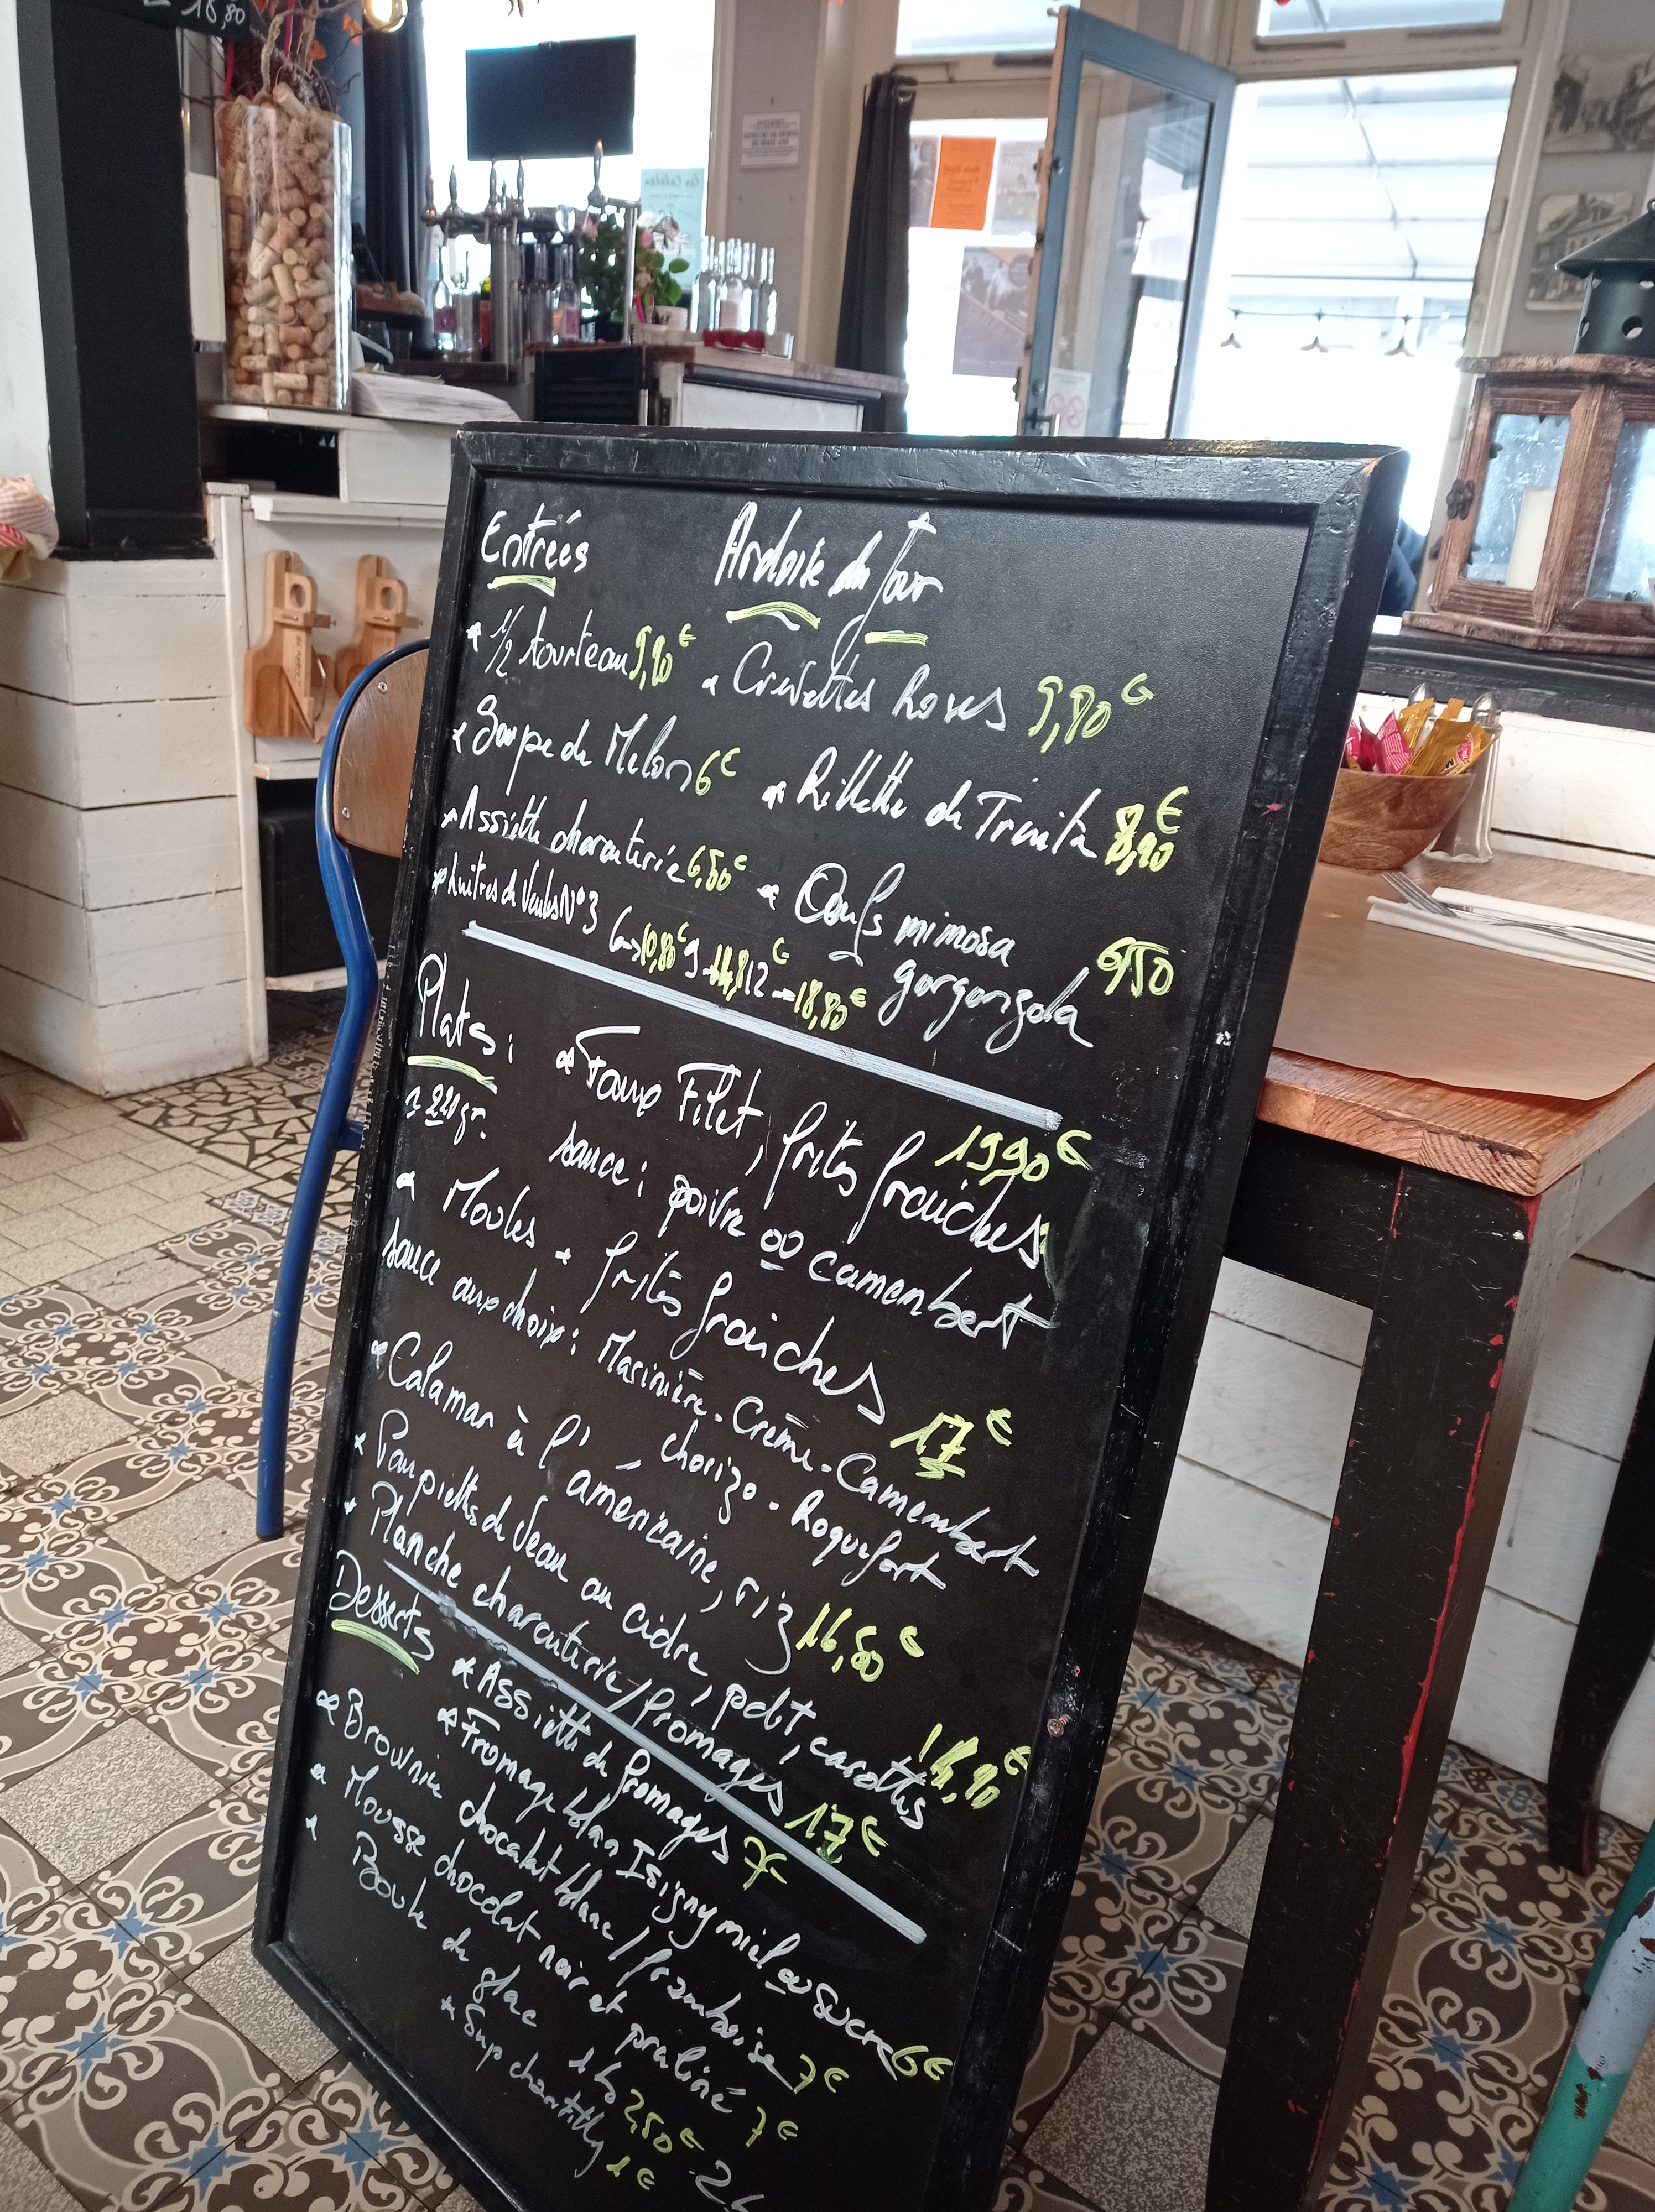 18,80
Entrées
Ardoise du Jour
* 1/2 tourteau 9,80€
* Crevettes Roses 9,80€
* Soupe de Melon 6€
* Rillette de Truite 8,90€
* Assiette charcuterie 6,50€
* Oeufs mimosa gorgonzola 6,50
* huitres de Veules N°3
6→10,80€ 9→14,8 12→18,80€
Plats :
* Faux Filet, frites fraîches 19,90€
~ 220gr.
sauce : poivre ou camembert
* Moules * frites fraîches 17€
sauce aux choix : Marinière - Crème - Camembert
- chorizo - Roquefort
* Calamar à l'américaine, riz 16,50€
* Paupiette de Veau au cidre, pdt, carottes
* Planche charcuterie/fromages 17€
Desserts
* Assiette de fromages 7
* Fromage blanc Isigny miel ou sucre 6€
* Brownie chocolat blanc / framboise 7€
* Mousse chocolat noir et praliné 7€
* Boule de glace 2,50€
* Sup chantilly 1€